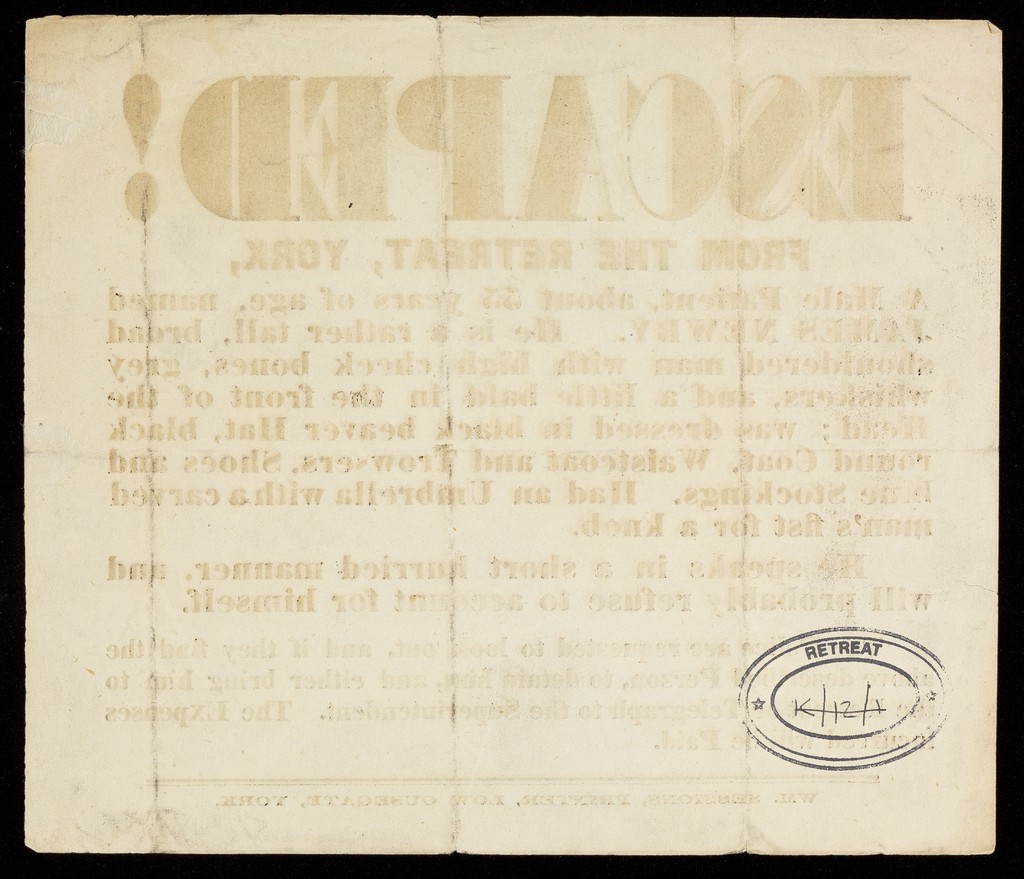 ESCAPED!
FROM THE RETREAT, YORK,
A Male Patient, about 55 years of age, named
JAMES NEWBY. He is a rather tall, broad
shouldered man with high cheek bones, grey
whiskers, and a little bald in the front of the
Head; was dressed in black beaver Hat, black
round Coat, Waistcoat and Trowsers, Shoes and
blue Stockings. Had an Umbrella with a carved
man's fist for a knob.
He speaks in a short hurried manner, and
will probably refuse to account for himself.
are requested to look out, and if they find the
above described Person, to detain him, and either bring him to
the Telegraph to the Superintendent. The Expenses
incurred will be Paid.
WM. SESSIONS, PRINTER, LOW OUSEGATE, YORK.
RETREAT
K/12/1